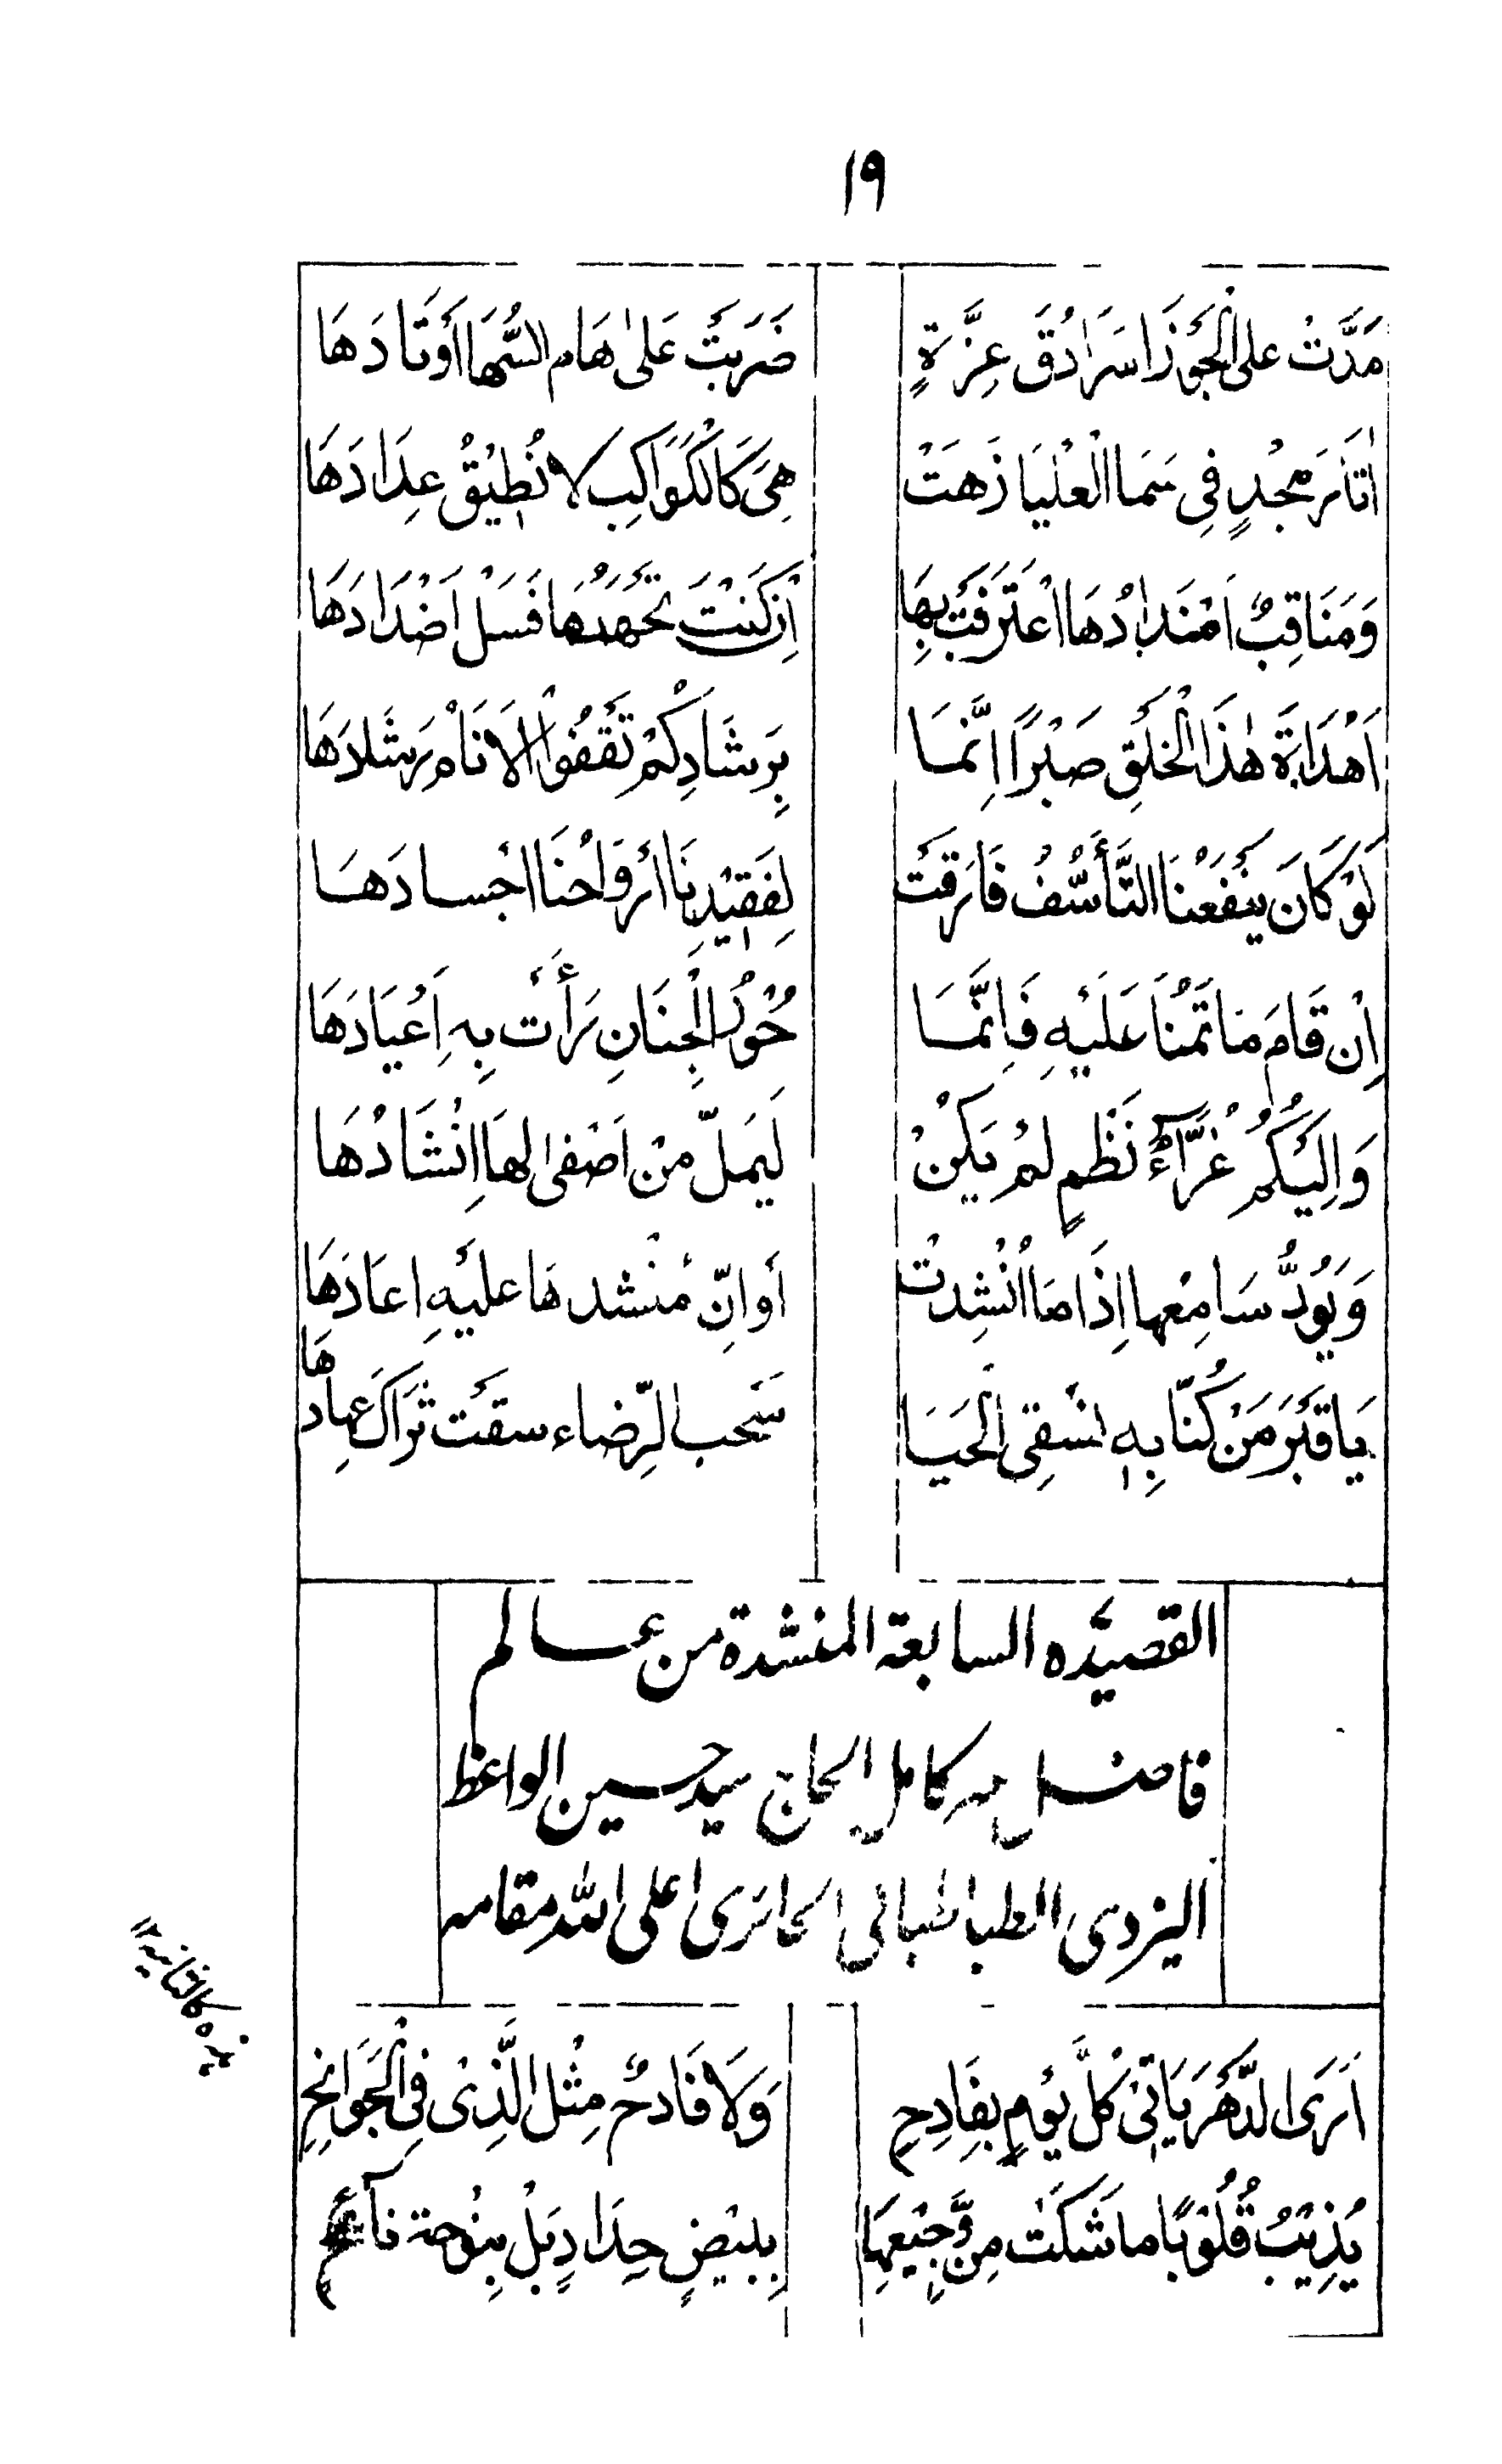 ١٩
مَدَّتْ على الْجَوزَا سَرَادُقَ عِزَّةٍ ضَرَبَتْ عَلىٰ هَامِ السُّهَا أَوْتَادَهَا
اٰثَارَ مجْدٍ فِي سَمَا الْعُلْيَا زَهَتْ هِيَ كَالْكَوَاكِبِ لا نُطِيْقُ عِدَادَهَا
وَمَنَاقِبٌ اَضْدَادُهَا اعْتَرَفَتْ بِهَا اِنْ كُنْتَ تَجْحَدُهَا فَسَلْ اَضْدَادَهَا
اَهْدَاةَ هٰذَا الْخَلْقِ صَبْرًا اِنَّمَا بِرَشَادِكُمْ تَقْفُوْا الاَنَامُ رَشَادَهَا
لَوْ كَانَ يَنْفَعُنَا التَّأَسُّفُ فَارَقَتْ لِفَقِيْدِنَا أرْوَاحُنَا اجْسادَهَا
اِنْ قَامَ مَاتَمُنَا عَلَيْهِ فَاِنَّمَا حُوْرُ الْجِنَانِ رَأَتْ بِهِ اَعْيَادَهَا
وَاِلَيْكُمُ غَرَّآءُ نَظْمٍ لَمْ يَكُنْ لَيَمَلّ مَنْ اَصْغىٰ لهَا اِنْشَادُهَا
وَيَوَدُّ سَامِعُها اِذَا مَا اُنْشِدتْ أَوانّ مُنْشدهَا عليْهِ اعَادَهَا
يَا قَبْرَ مَنْ كُنّا بِهِ نَسْقِى الْحَيَا سَحَب الرِّضاء سقَتْ ثَرَاكَ عِهادهَا
القصيده السابعة المنشدة من عالم
فاضل كامل الحاج سيد حسين الواعظ
اليزدى الطباطبائى الحائرى اعلى الله مقامه
هذه كالثانية ١٢
اَرَى الدَّهْرَ يَاتِىْ كُلَّ يَوْمٍ بِفَادِحٍ وَلَا فَادحٌ مِثْل الَّذِىْ فِى الْجَوَانِحِ
يُذِيْبُ قُلُوْبًا ما شَكَتْ مِنْ وَجِيْعِهَا بِبيْضٍ حِدَادٍ بَلْ بِنَوْحة نَائِحٍ